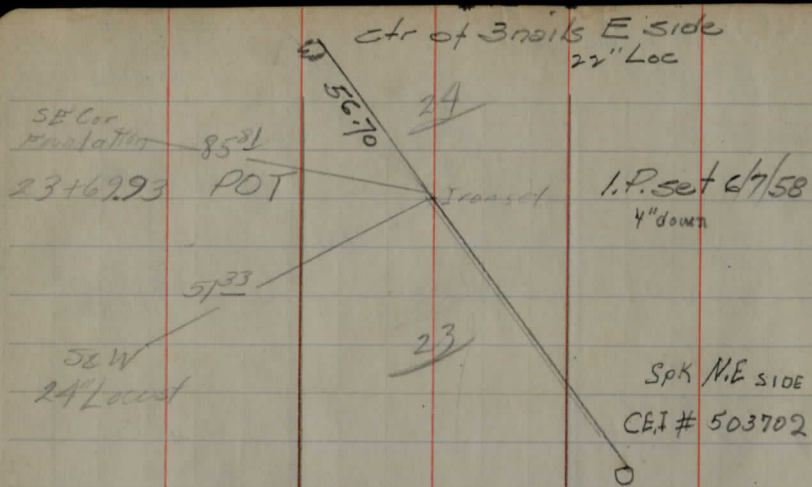 ctr of 3 nails E side
22" Loc
56.70
24
SE Cor
85 81
23+69.93 POT
Iron set
I.P. set 6/7/58
4" down
51 33
23
S&W
24" Locust
SpK N.E SIDE
CEI # 503702